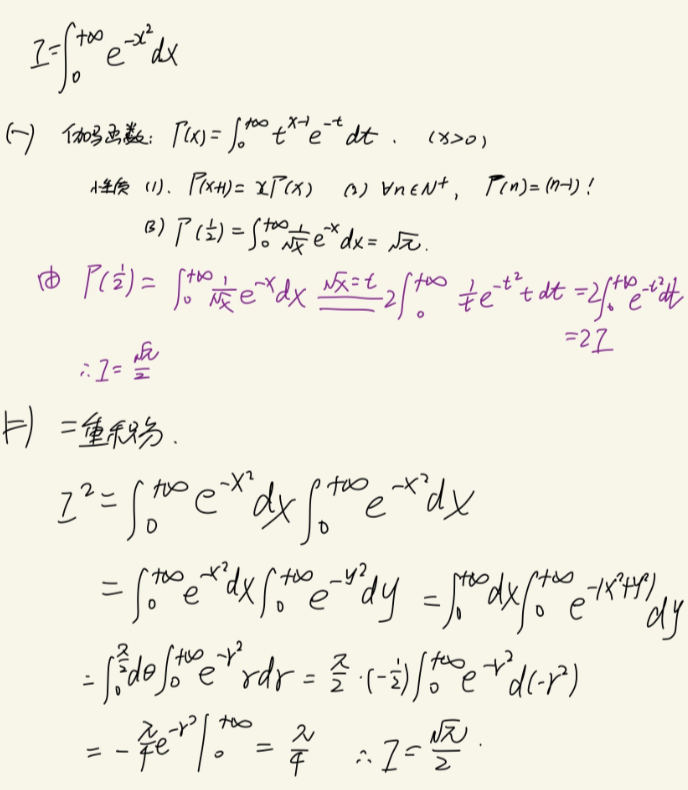 I=∫₀^{+∞} e^{-x²}dx
(一) 伽马函数: Γ(x)=∫₀^{+∞} t^{x-1}e^{-t}dt. (x>0)
性质 (1). Γ(x+1)=xΓ(x) (2) ∀n∈N⁺, Γ(n)=(n-1)!
(3) Γ(1/2)=∫₀^{+∞} 1/√x e^{-x}dx=√π.
由 Γ(1/2)=∫₀^{+∞} 1/√x e^{-x}dx √x=t 2∫₀^{+∞} 1/t e^{-t²}t dt =2∫₀^{+∞} e^{-t²}dt
=2I
∴I=√π/2
(二) 二重积分.
I²=∫₀^{+∞} e^{-x²}dx∫₀^{+∞} e^{-x²}dx
=∫₀^{+∞} e^{-x²}dx∫₀^{+∞} e^{-y²}dy =∫₀^{+∞}dx∫₀^{+∞} e^{-(x²+y²)}dy
=∫₀^{π/2}dθ∫₀^{+∞} e^{-r²}rdr = π/2·(-1/2)∫₀^{+∞} e^{-r²}d(-r²)
=-π/4 e^{-r²}|₀^{+∞} = π/4 ∴I=√π/2.